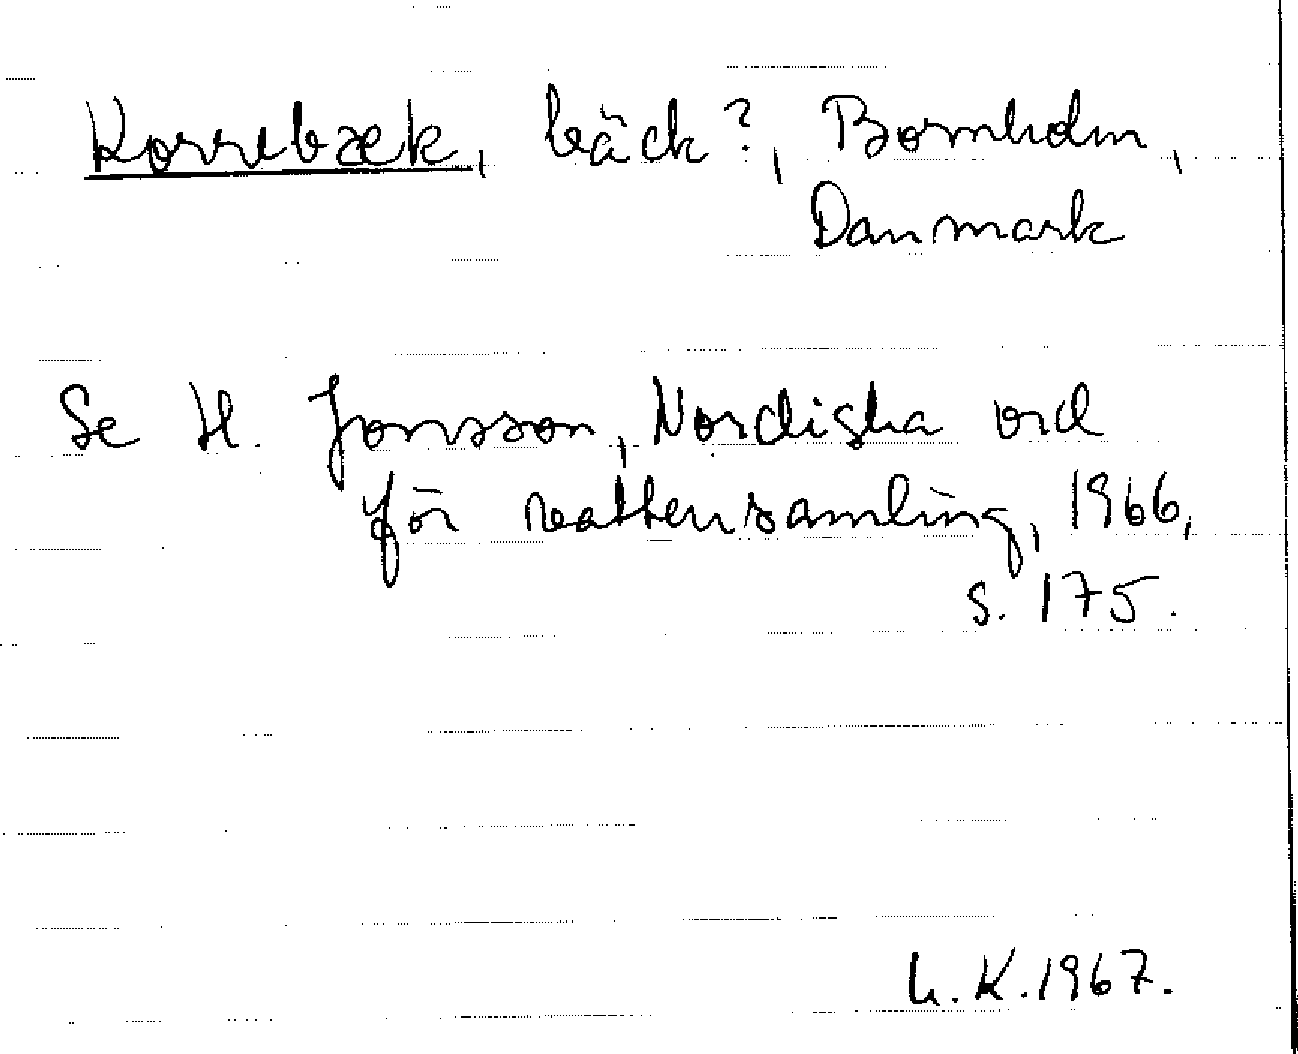 Korrebæk, bäck?, Bornholm,
Danmark
Se H. Jonsson, Nordiska ord
för vattensamling, 1966,
s. 175.
L. K. 1967.